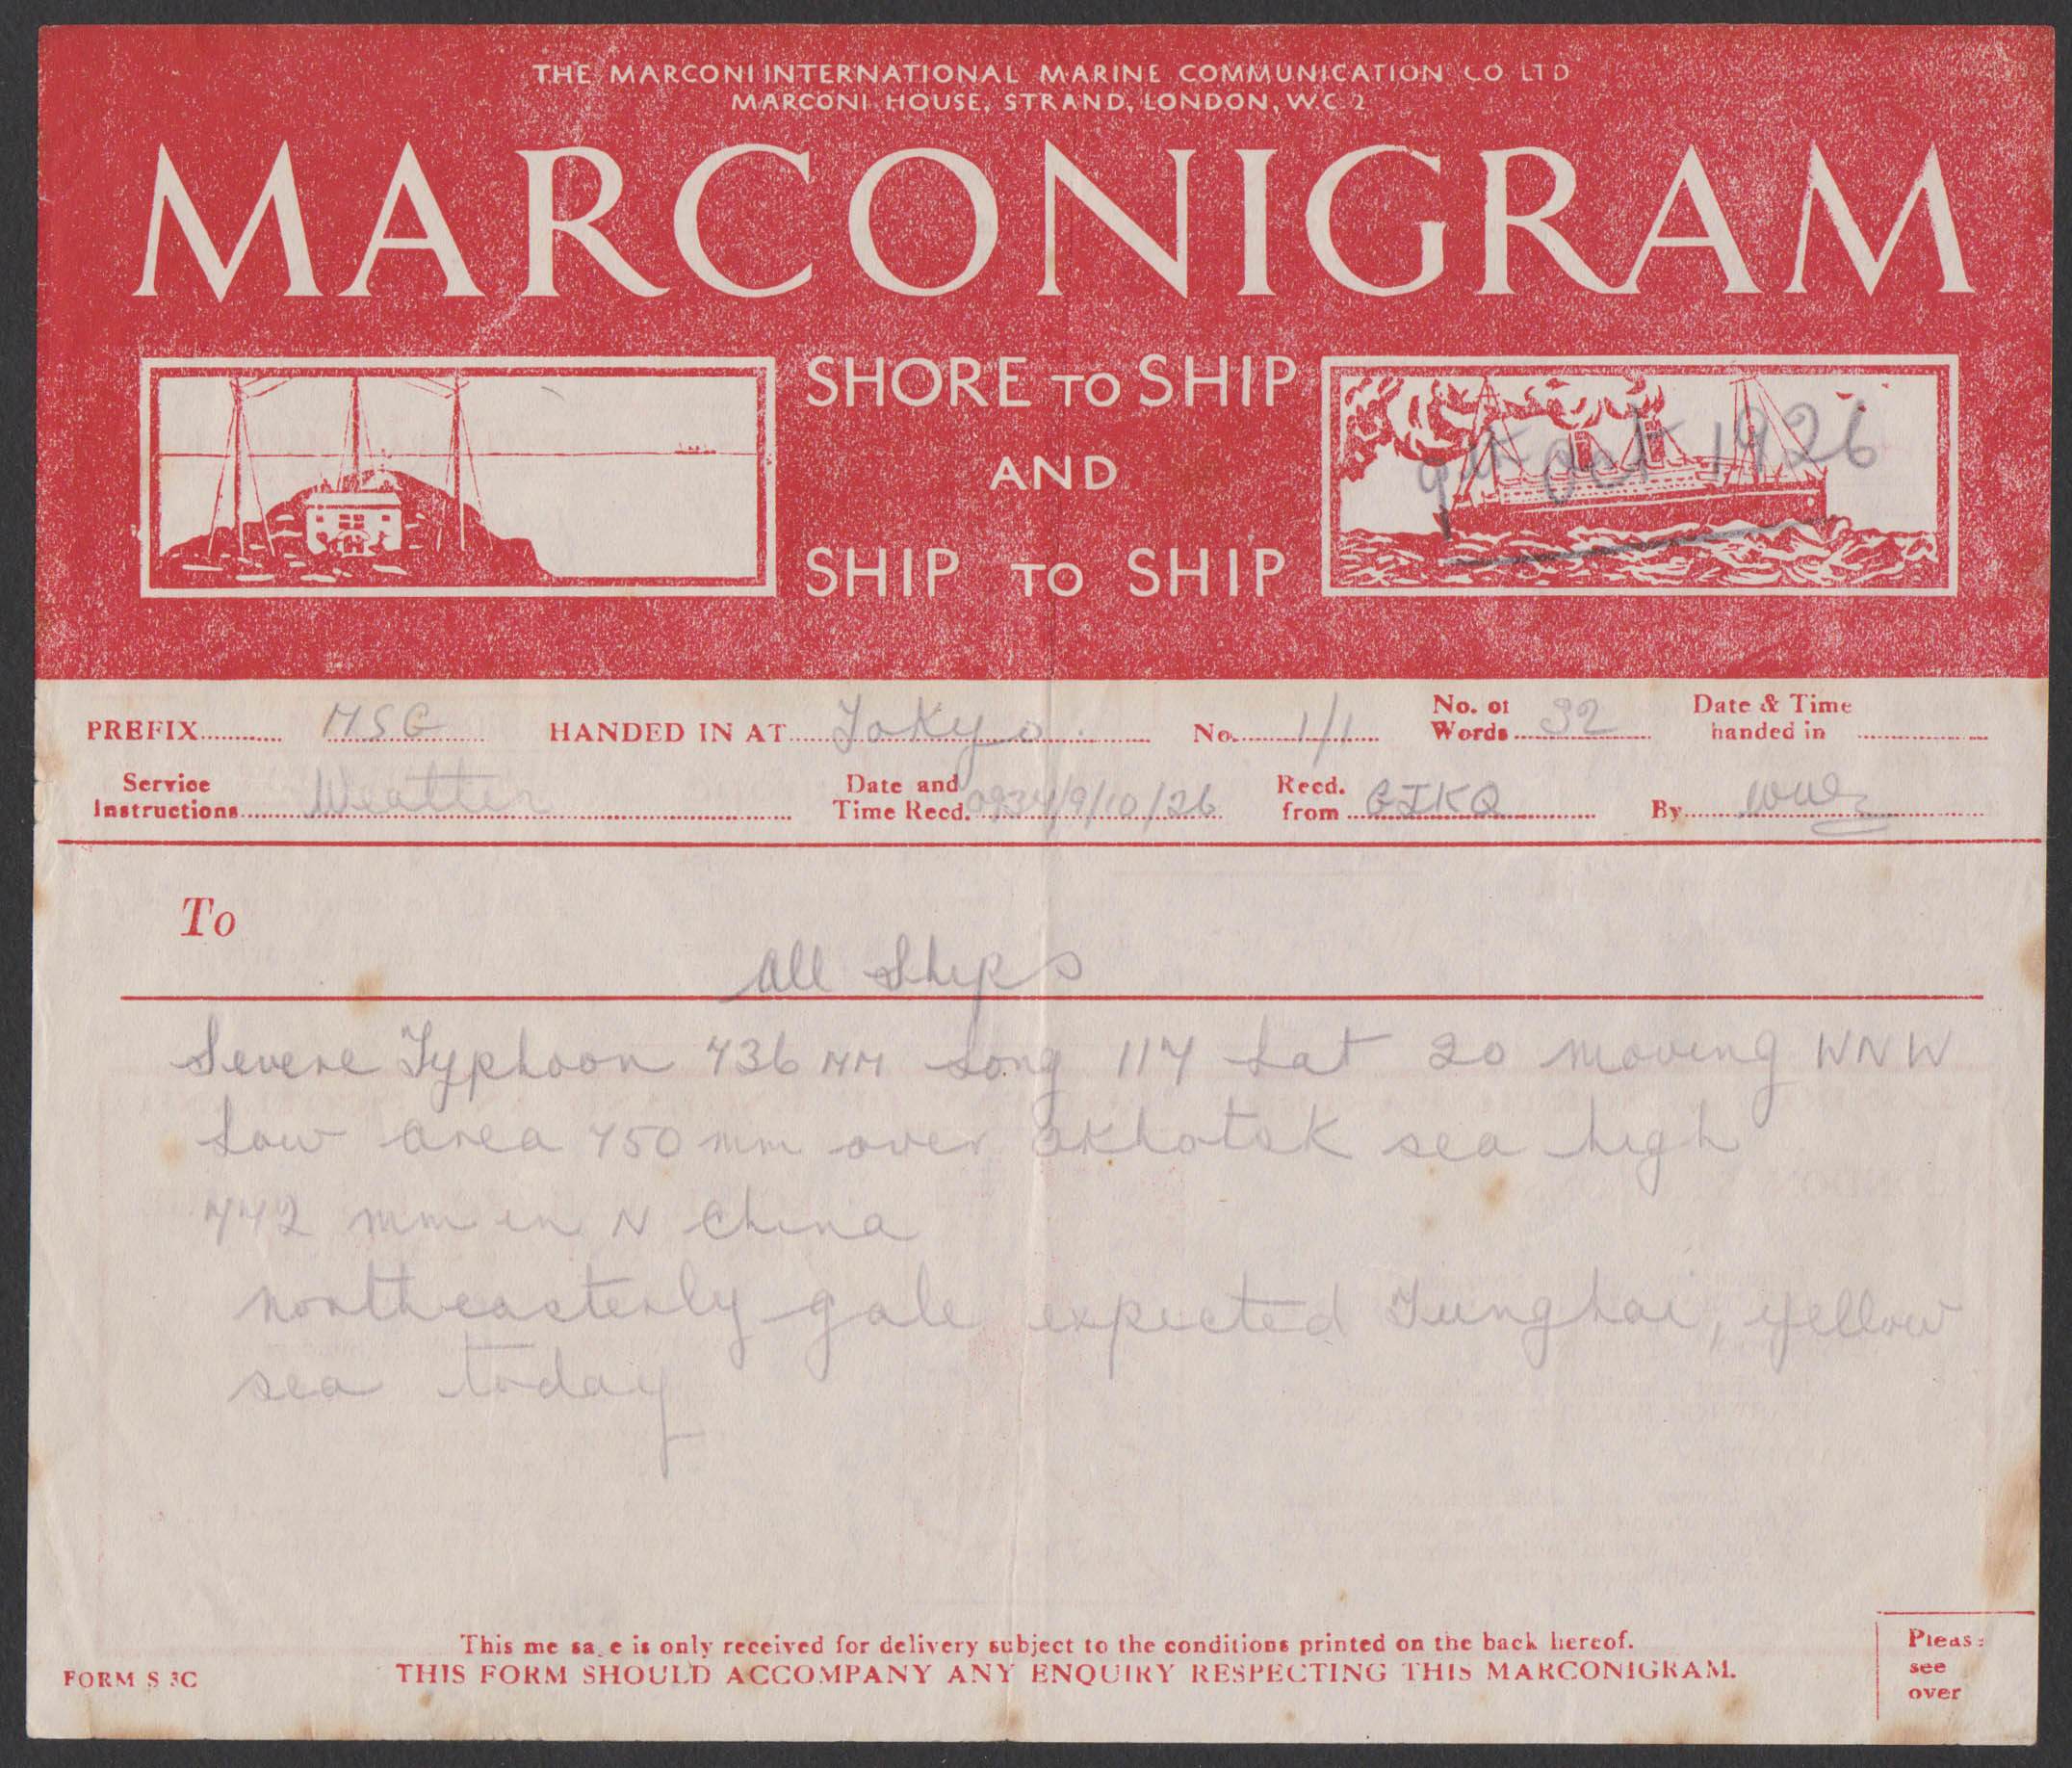 THE MARCONI INTERNATIONAL MARINE COMMUNICATION CO LTD
MARCONI HOUSE, STRAND, LONDON, W.C.2
MARCONIGRAM
SHORE TO SHIP
AND
SHIP TO SHIP
9th Oct 1926
PREFIX MSG HANDED IN AT Tokyo. No. 1/1 No. of Words 32 Date & Time handed in
Service Instructions Weather Date and Time Recd. 0934/9/10/26 Recd. from GJKQ By
To
All Ships
Severe Typhoon 736 MM Long 117 Lat 20 moving WNW
Low area 750 mm over Okhotsk sea high
772 mm in N China
northeasterly gale expected Tunghai, yellow
sea today
This me sa e is only received for delivery subject to the conditions printed on the back hereof.
FORM S 3C THIS FORM SHOULD ACCOMPANY ANY ENQUIRY RESPECTING THIS MARCONIGRAM.
Pleas:
see
over